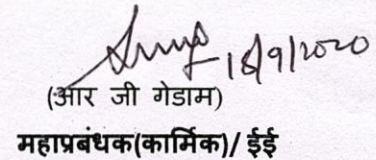 18/9/2020
(आर जी गेडाम)
महाप्रबंधक(कार्मिक)/ ईई